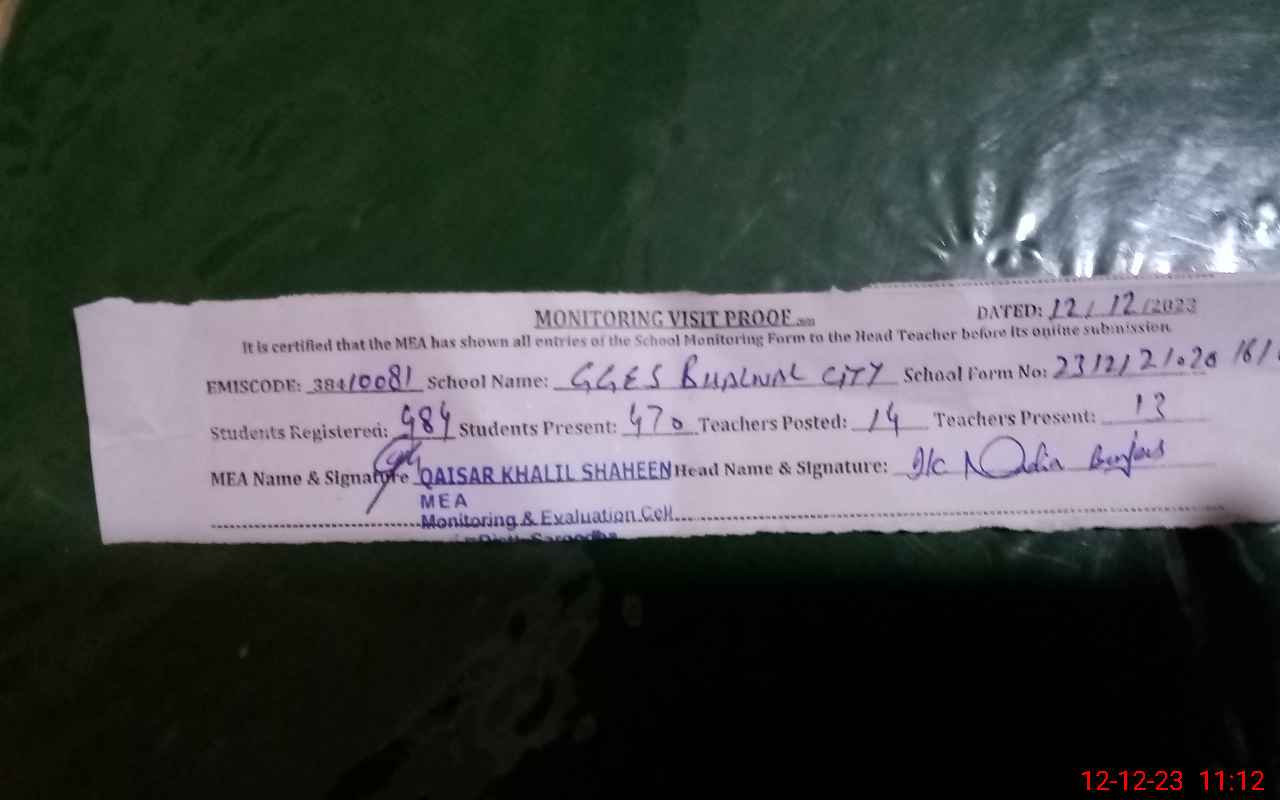 MONITORING VISIT PROOF DATED: 12/12/2023
It is certified that the MEA has shown all entries of the School Monitoring Form to the Head Teacher before its online submission.
EMISCODE: 38410081 School Name: GGES BHALWAL CITY School Form No:
Students Registered: 484 Students Present: 470 Teachers Posted: 14 Teachers Present: 13
MEA Name & Signature QAISAR KHALIL SHAHEEN Head Name & Signature: I/c Nadia
MEA
Monitoring & Evaluation Cell
Distt. Sargodha
12-12-23 11:12